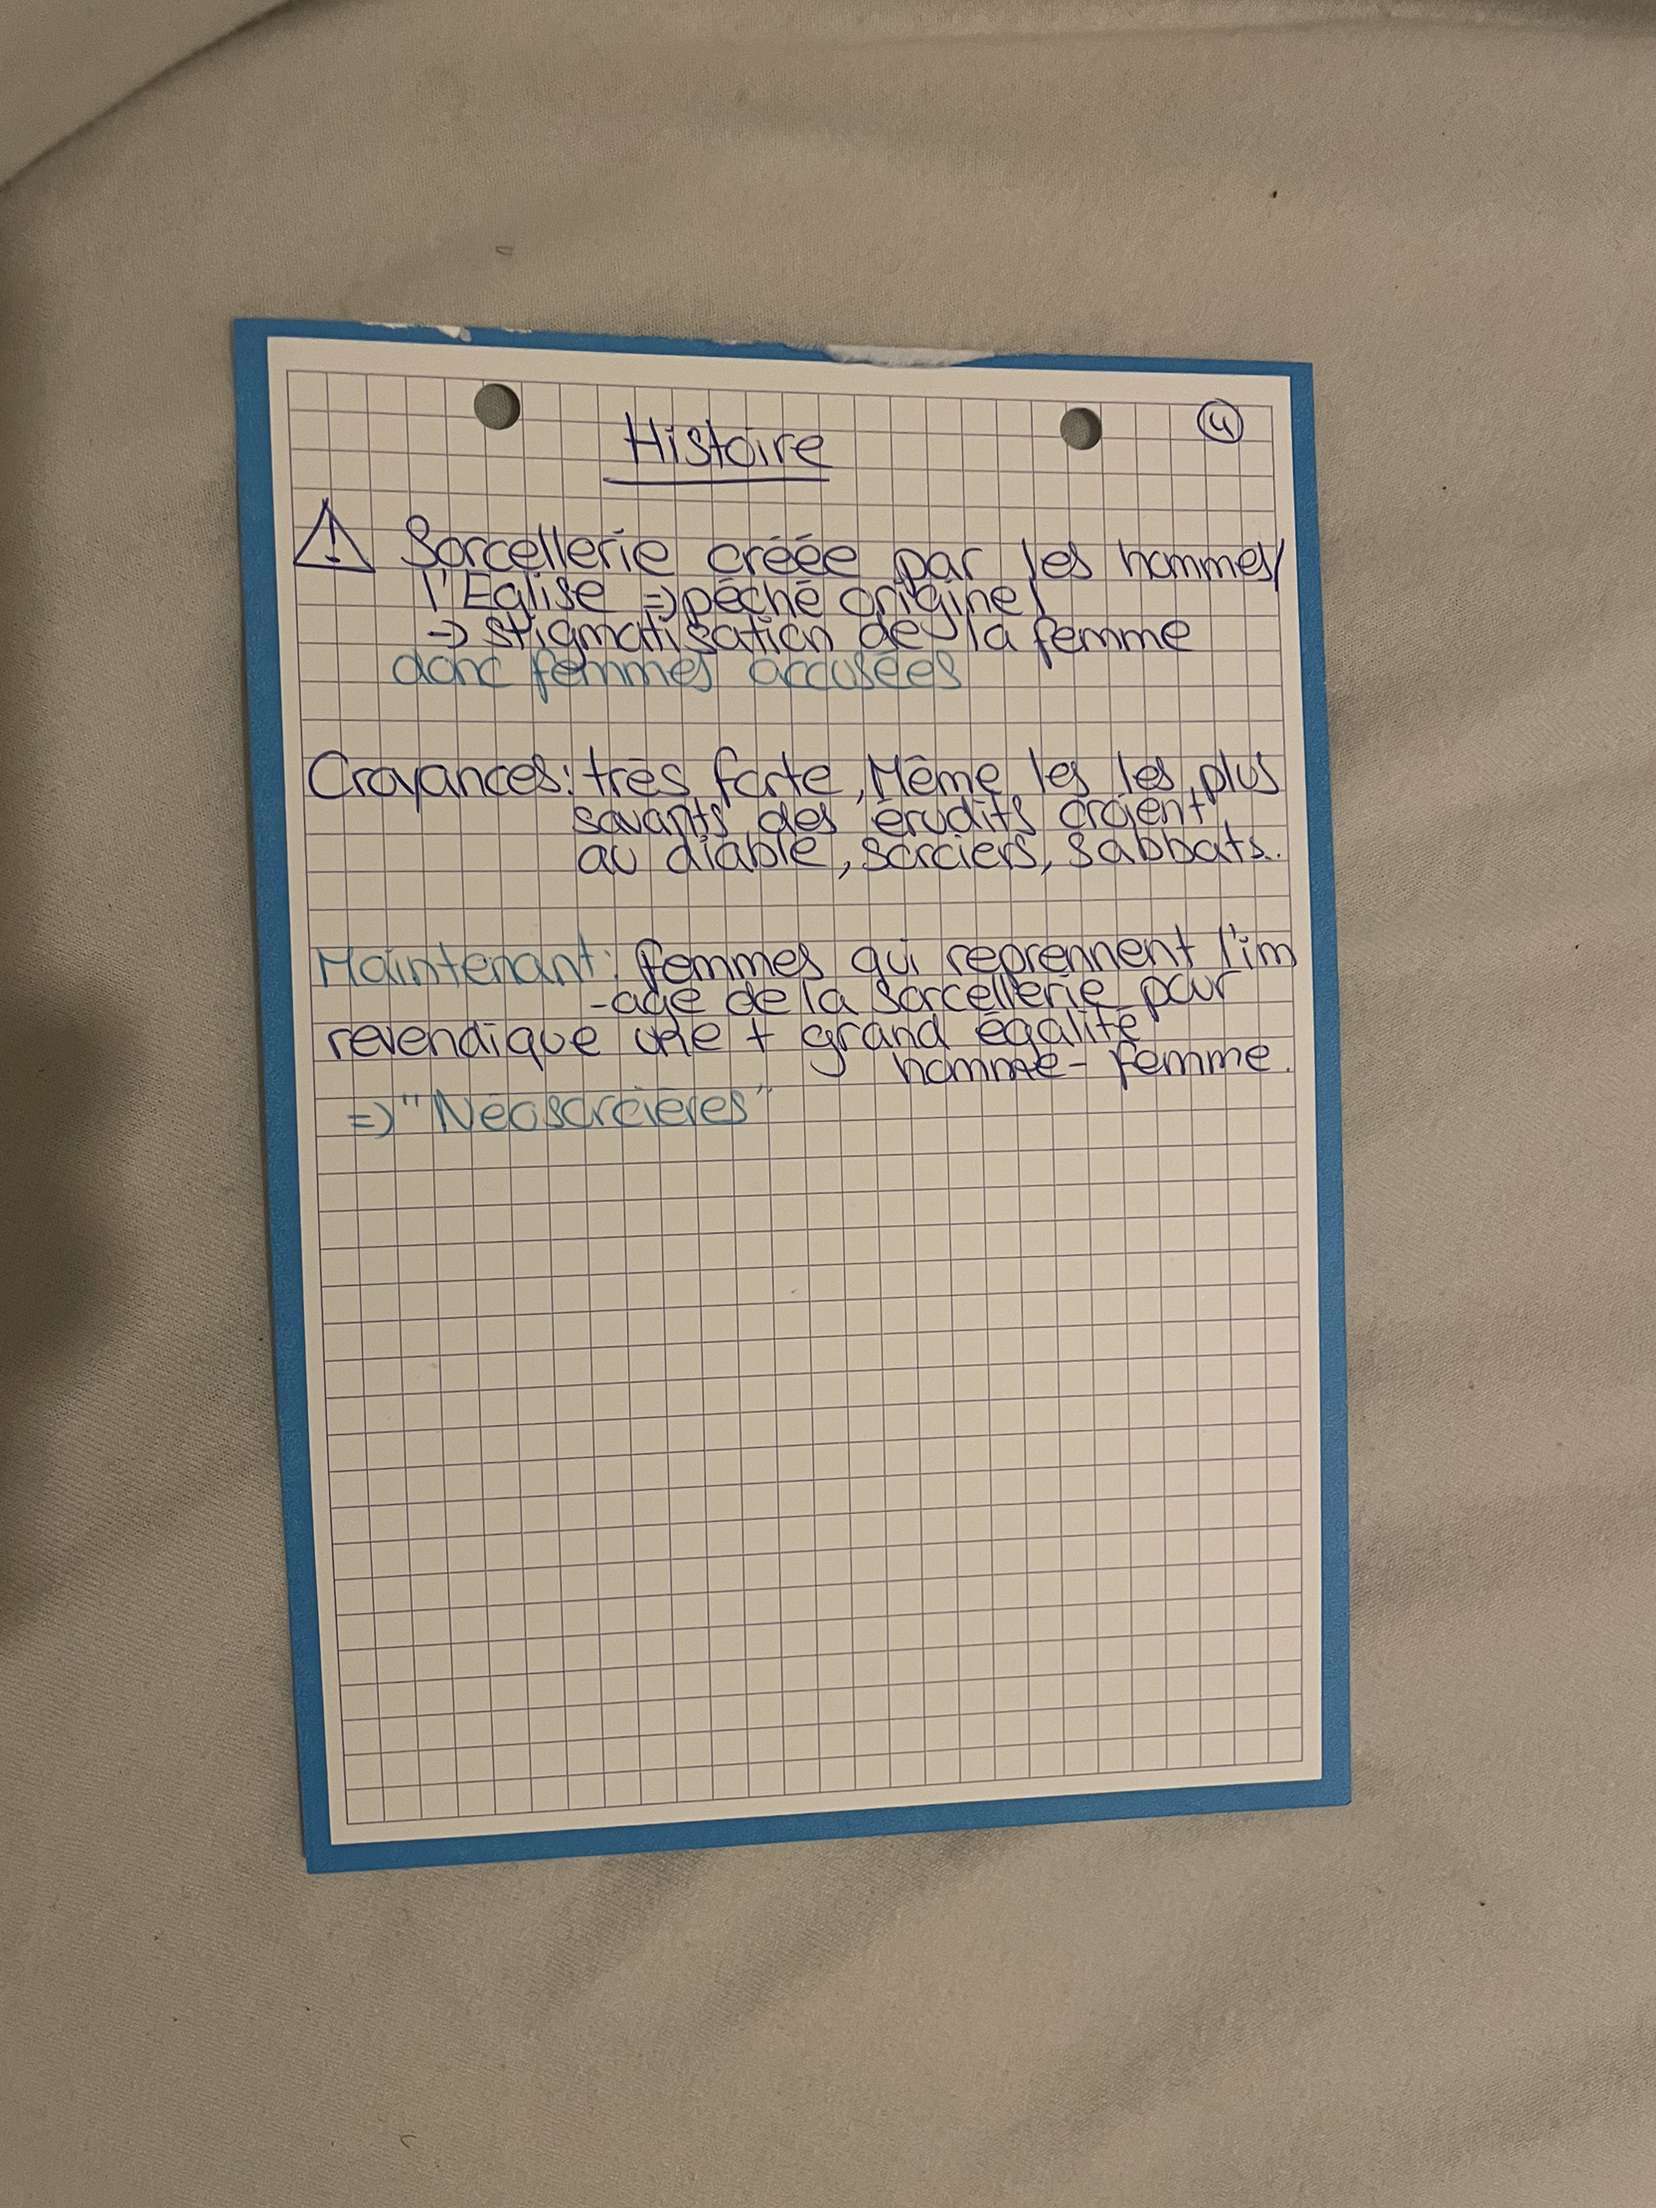 Histoire
4
⚠ Sorcellerie créée par les hommes/
l'Eglise => péché originel
-> stigmatisation de la femme
donc femmes accusées
Croyances: très forte, Même les les plus
savants, des érudits croient
au diable, sorciers, sabbats.
Maintenant: femmes qui reprennent l'im
-age de la sorcellerie pour
revendique une + grand égalité
homme-femme.
=> "Néosorcières"